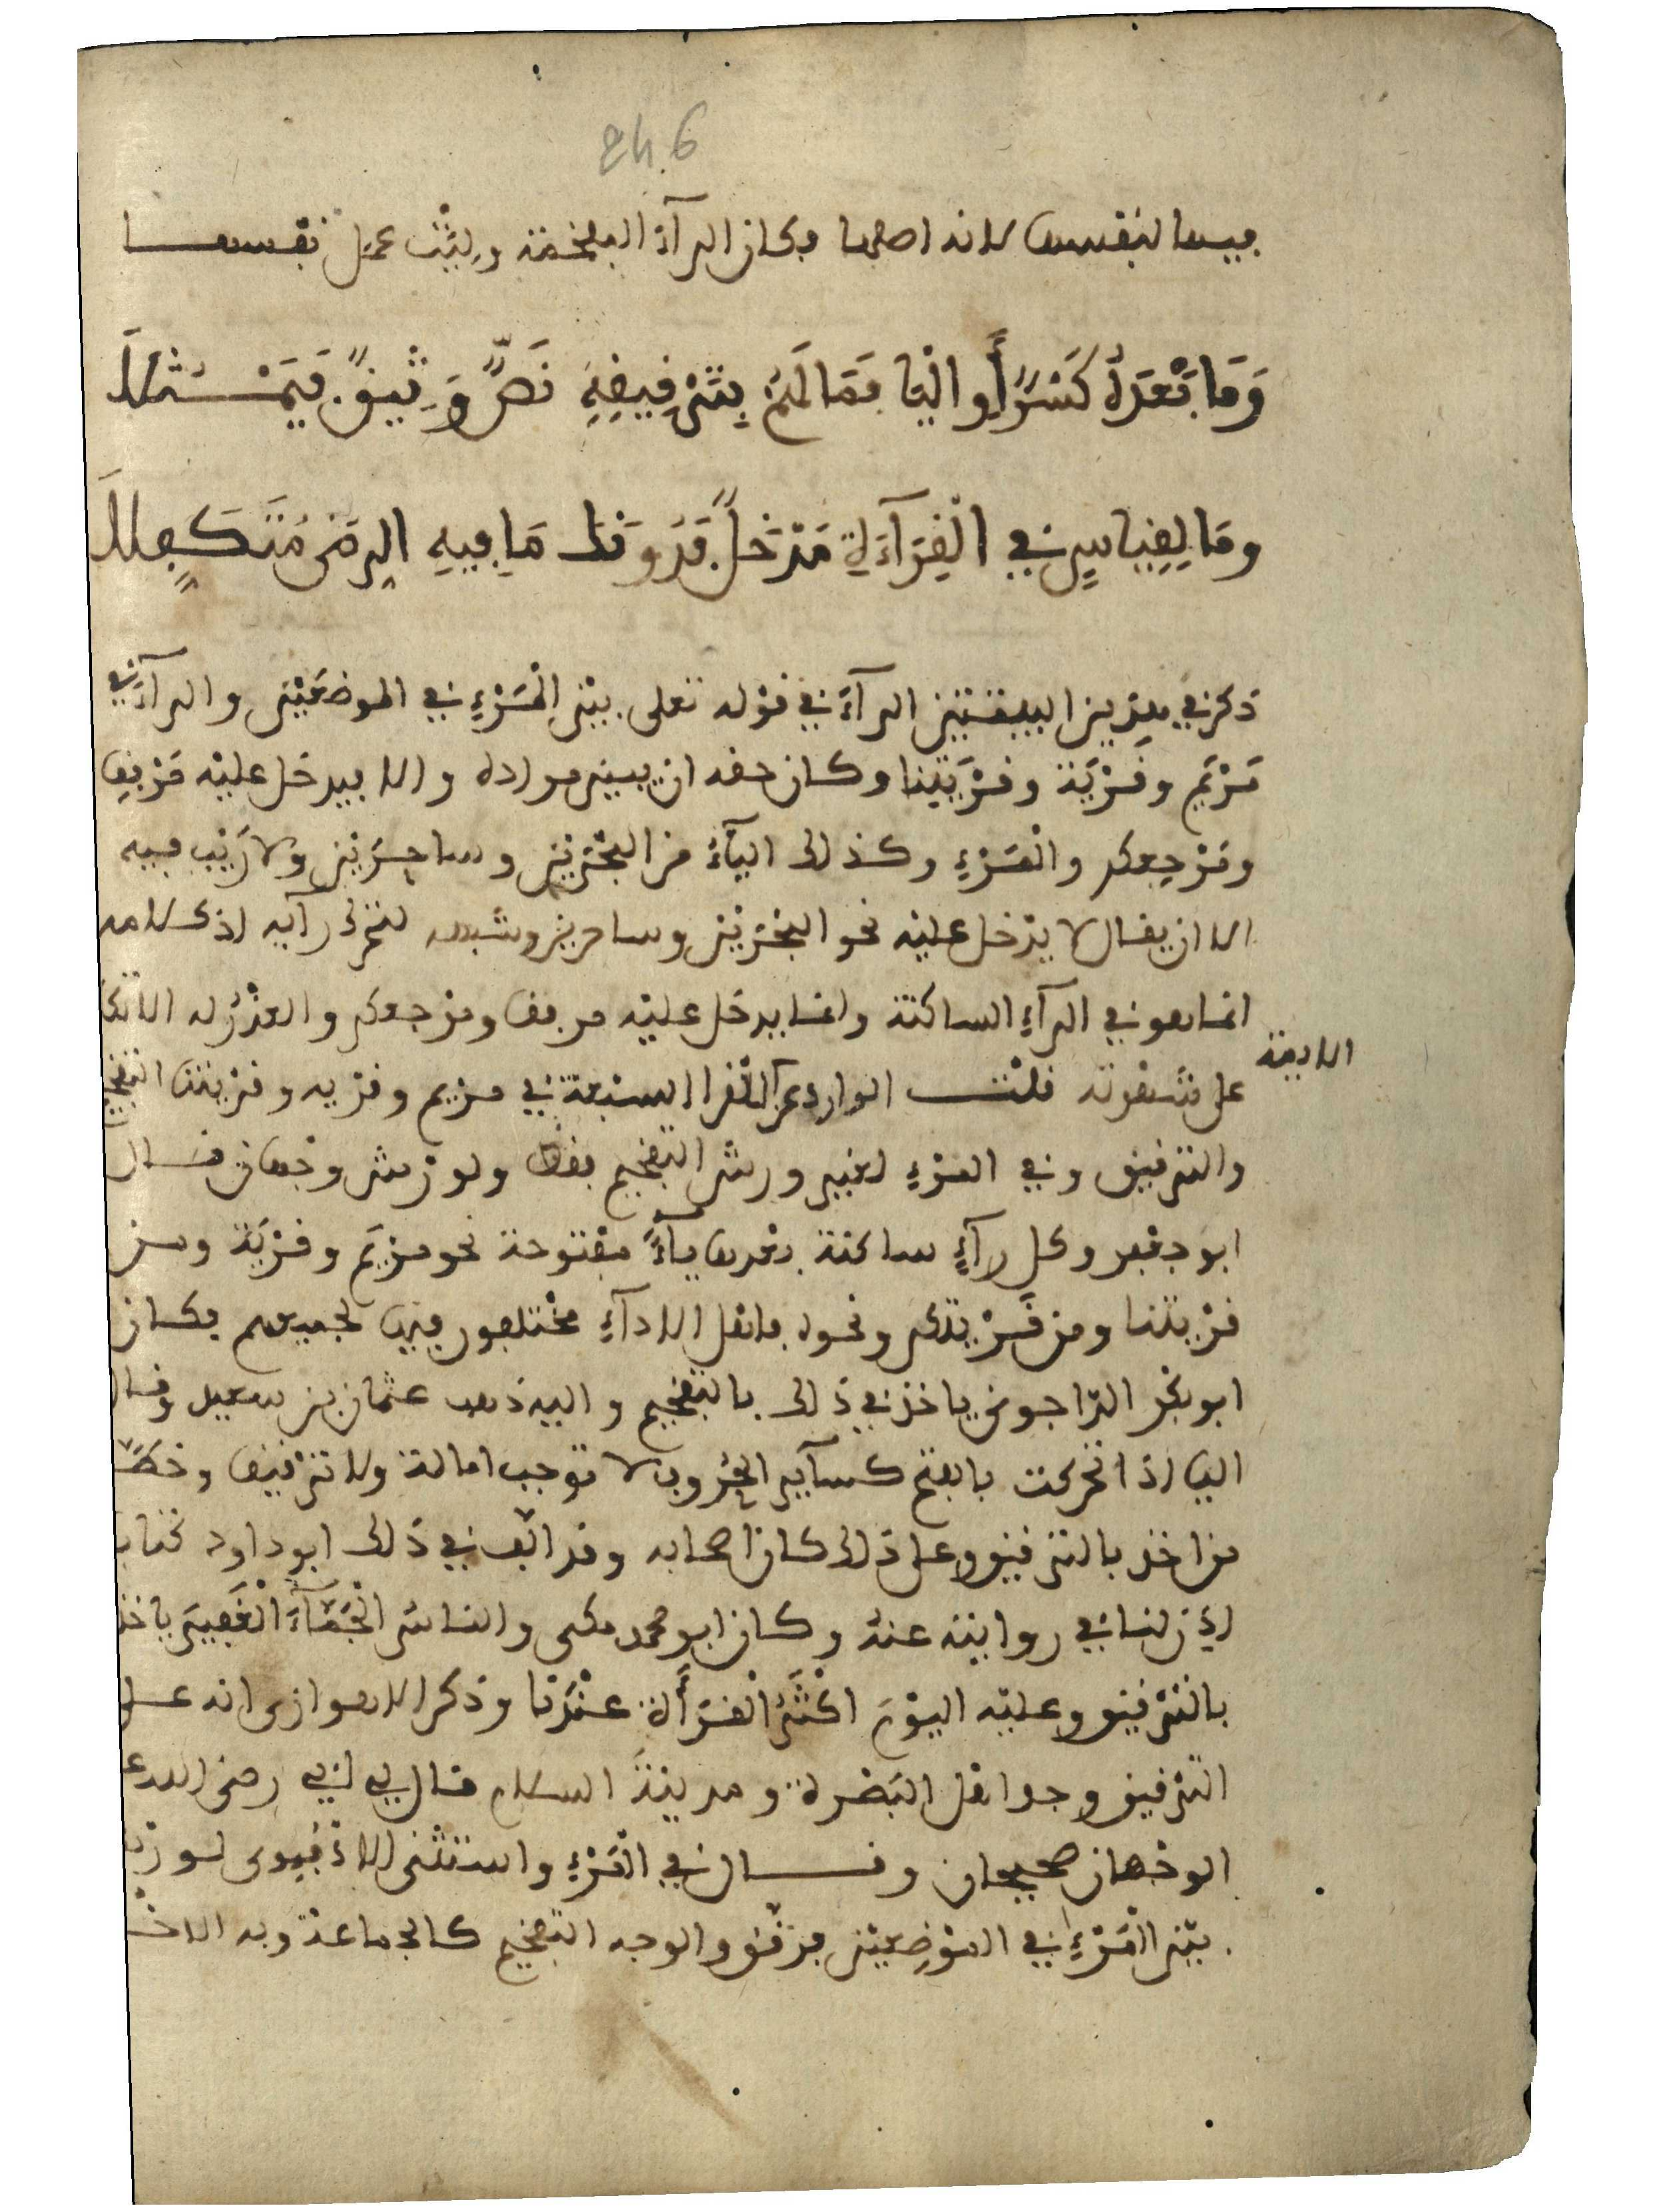 246
فيها لنفسها لانه اصلها فكان الرآء المفخمة وليث عمل نفسها
وَمَا بَعْدَهُ كَسْرٌ أَوِ الْيَا فَمَا لَهُمْ بِتَرْقِيقِهِ نَصٌّ وَثِيقٌ فَيَمْثُلَا
وَمَا لِقِيَاسٍ فِي الْقِرَآءَةِ مَدْخَلٌ فَدُونَكَ مَا فِيهِ الرِّضَى مُتَكَفِّلَا
ذكر في هذين البيتين الرآء في قوله تعلى بين المَرْءِ في الموضعَيْن والرآء في
مَرْيَم وقَرْيَة وقَرْيَتِنا وكان حقه ان يبين مراده والا فيدخل عليْه مرْفِقا
ومَرْجِعكم والمَرْءِ وكذلك اليآءُ من البحْرَيْن وساحِرَيْن ولا رَيْب فيه
الا ان يقال لا يدْخل عليْه نحو البحْرَيْن وساحرين وشبهه لتحرك رآيه اذ كلامه
انما هو في الرآءِ الساكنة وانما يدخل عليْه مرفقا ومرْجعكم والعذْرُ له الاتكا
الايمة
على شهرته قلت الوارد عن القرا السبعة في مريم وقرْيه وقرْيتنا التفخيم
والترقيق وفي المرْءِ لغير ورش التفخيم فقط ولورْش وجْهان قال
ابو جعْفر وكل رآءٍ ساكنة بعْدها يآءٌ مفتوحة نحو مرْيَم وقَرْيَة ومن
قرْيتنا ومن قَرْيتكم ونحوه فاهل الادآءِ مختلفون فيها لجميعهم فكان
ابو بكْر الدّاجوني ياخذ في ذلك بالتفخيم واليه ذهب عثمان بن سعيد وقال
اليا اذا تحركت بالفتح كسآير الحُروف لا توجب امالة ولا ترْقيقا وخطَّأ
من اخذ بالترقيق وعلى ذلك كان اصحابه وقد الّف في ذلك ابو داود كتابا
اذن لنا في روايته عنْه وكان ابو محمد مكي والناسُ الجَمَّآءَ الْغَفِيرَ ياخذ
بالترْقيق وعليْه اليوْمَ اكْثَرُ القرَأَة عنْدنا وذكر الاهوازي انه على
الترْقيق وجد اهل البَصْرة ومدينةَ السلام قال لي ابي رضي الله عـ
الوجْهان صحيحان وقال في المَرْءِ واستثنى الاذْفُوِي لورْش
بيْن الْمَرْءِ في الموْضِعيْن فرقّق والوجه التفخيم كالجماعة وبه الاخْـ